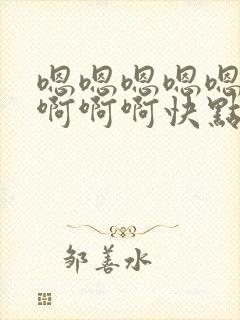 嗯嗯嗯嗯嗯
啊啊啊快點
邹善水